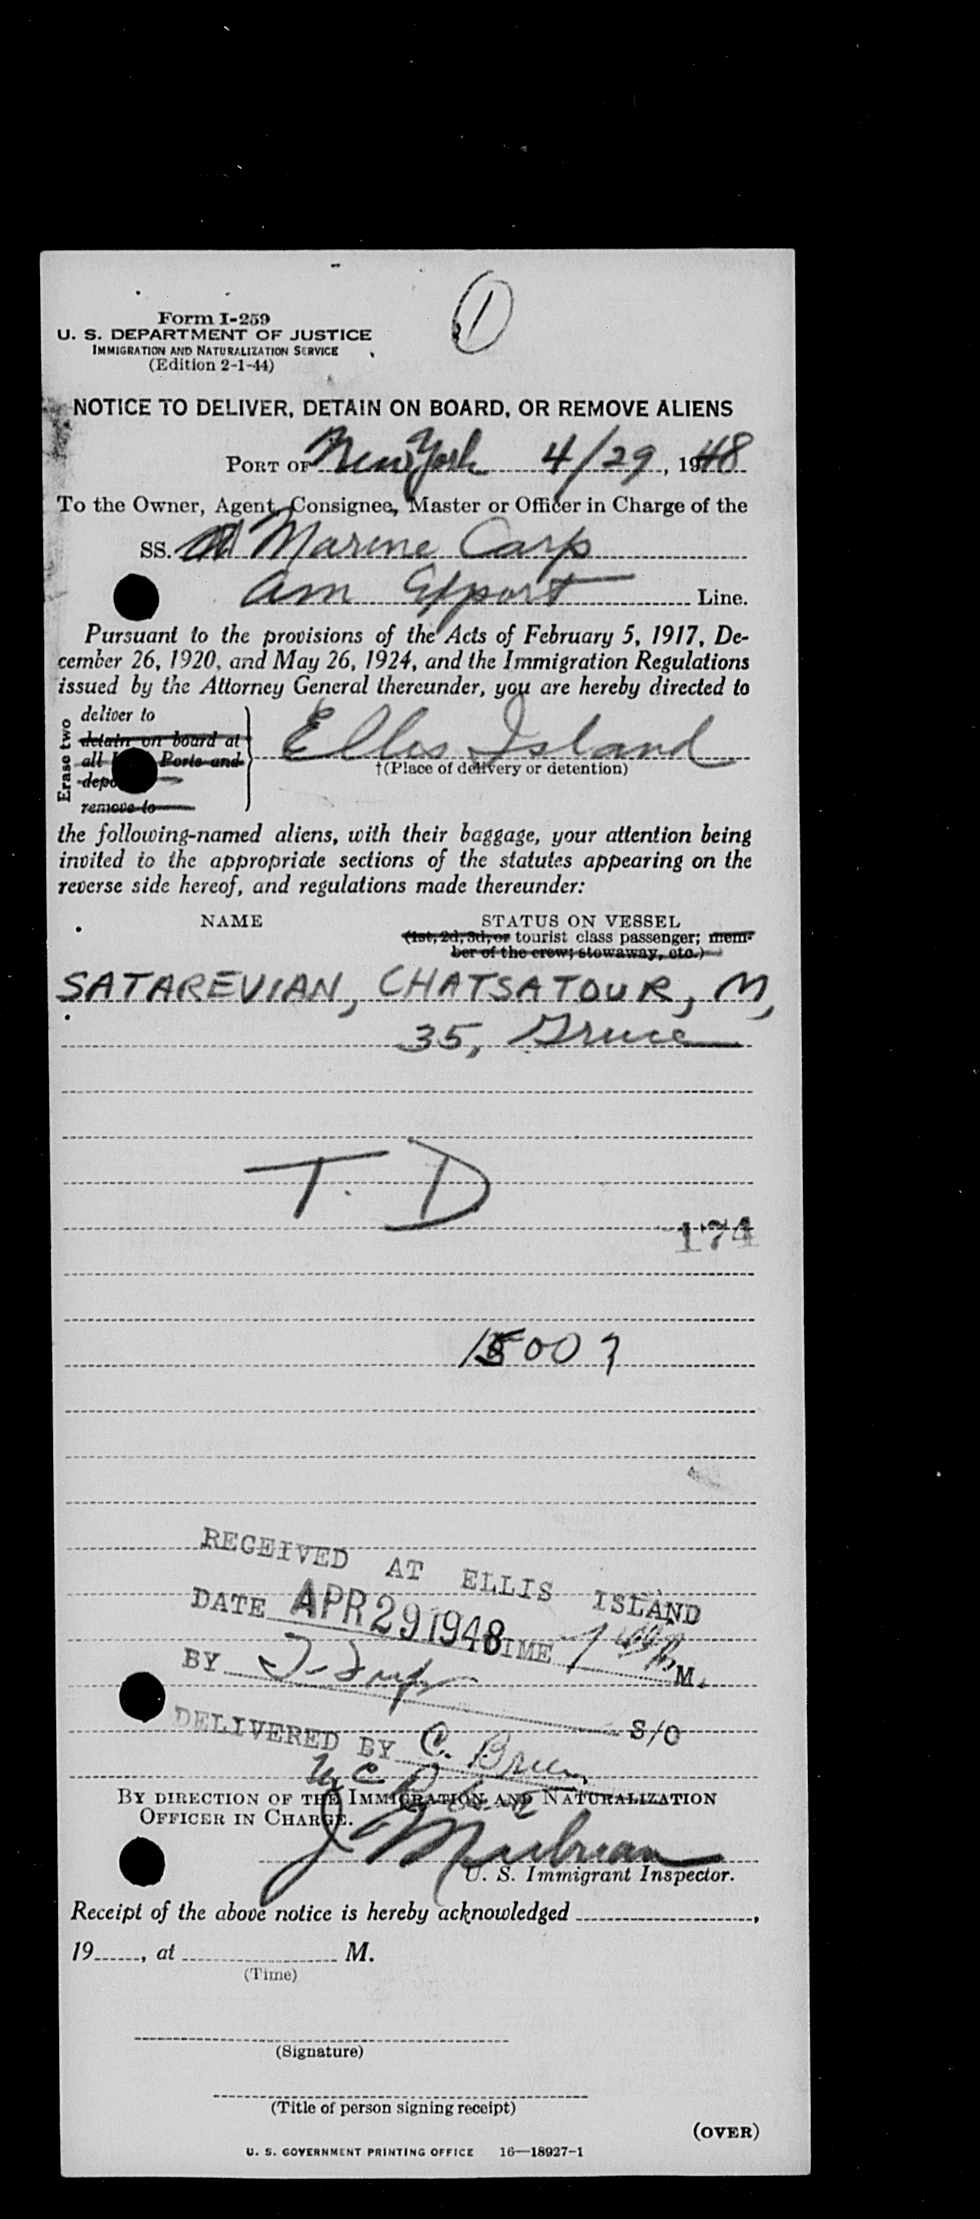 1
Form I-259
U. S. DEPARTMENT OF JUSTICE
IMMIGRATION AND NATURALIZATION SERVICE
(Edition 2-1-44)
NOTICE TO DELIVER, DETAIN ON BOARD, OR REMOVE ALIENS
PORT OF New York 4/29, 1948
To the Owner, Agent, Consignee, Master or Officer in Charge of the
SS. Marine Carp
Am Export Line.
Pursuant to the provisions of the Acts of February 5, 1917, De-
cember 26, 1920, and May 26, 1924, and the Immigration Regulations
issued by the Attorney General thereunder, you are hereby directed to
Erase two
deliver to
detain on board at
all Ports and
remove to
Ellis Island
†(Place of delivery or detention)
the following-named aliens, with their baggage, your attention being
invited to the appropriate sections of the statutes appearing on the
reverse side hereof, and regulations made thereunder:
NAME STATUS ON VESSEL
(1st, 2d, 3d, or tourist class passenger; mem-
ber of the crew; stowaway, etc.)
SATAREVIAN, CHATSATOUR, M,
35, Greece
T. D
174
RECEIVED AT ELLIS ISLAND
DATE APR 29 1948 TIME M.
BY
S/O
DELIVERED BY C.
BY DIRECTION OF THE IMMIGRATION AND NATURALIZATION
OFFICER IN CHARGE.
U. S. Immigrant Inspector.
Receipt of the above notice is hereby acknowledged ,
19 , at M.
(Time)
(Signature)
(Title of person signing receipt)
(OVER)
U. S. GOVERNMENT PRINTING OFFICE 16—18927-1